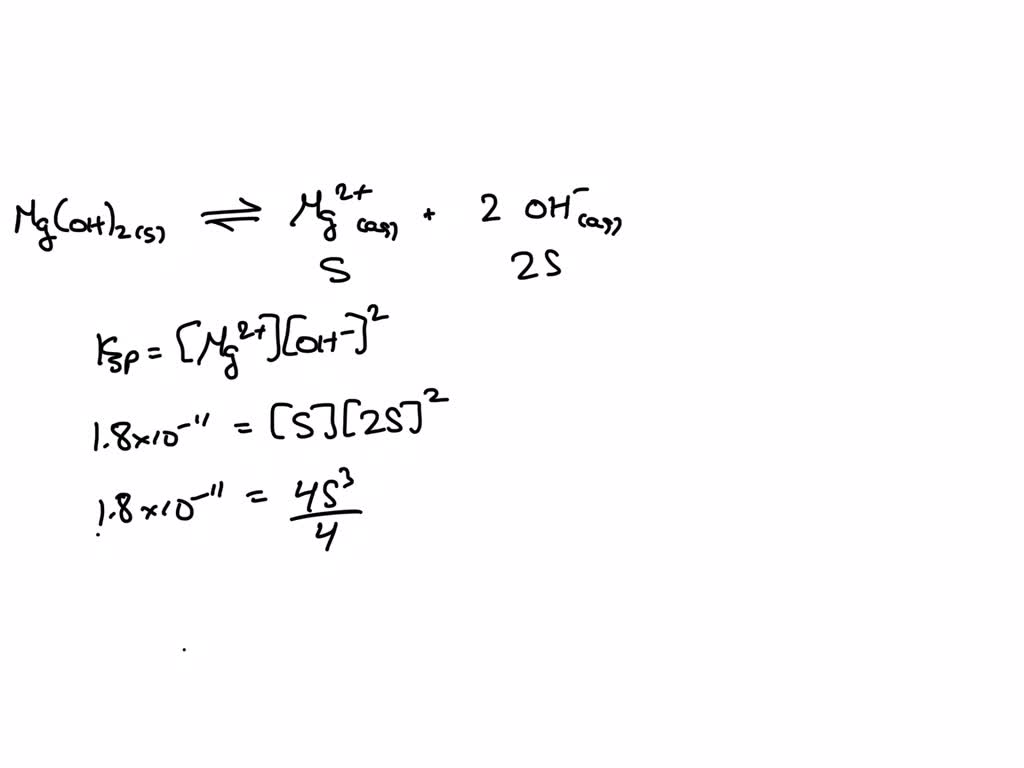 Mg(OH)₂(s) ⇌ Mg²⁺(aq) + 2 OH⁻(aq)
S 2S
Ksp = [Mg²⁺][OH⁻]²
1.8×10⁻¹¹ = [S][2S]²
1.8×10⁻¹¹ = 4S³
4